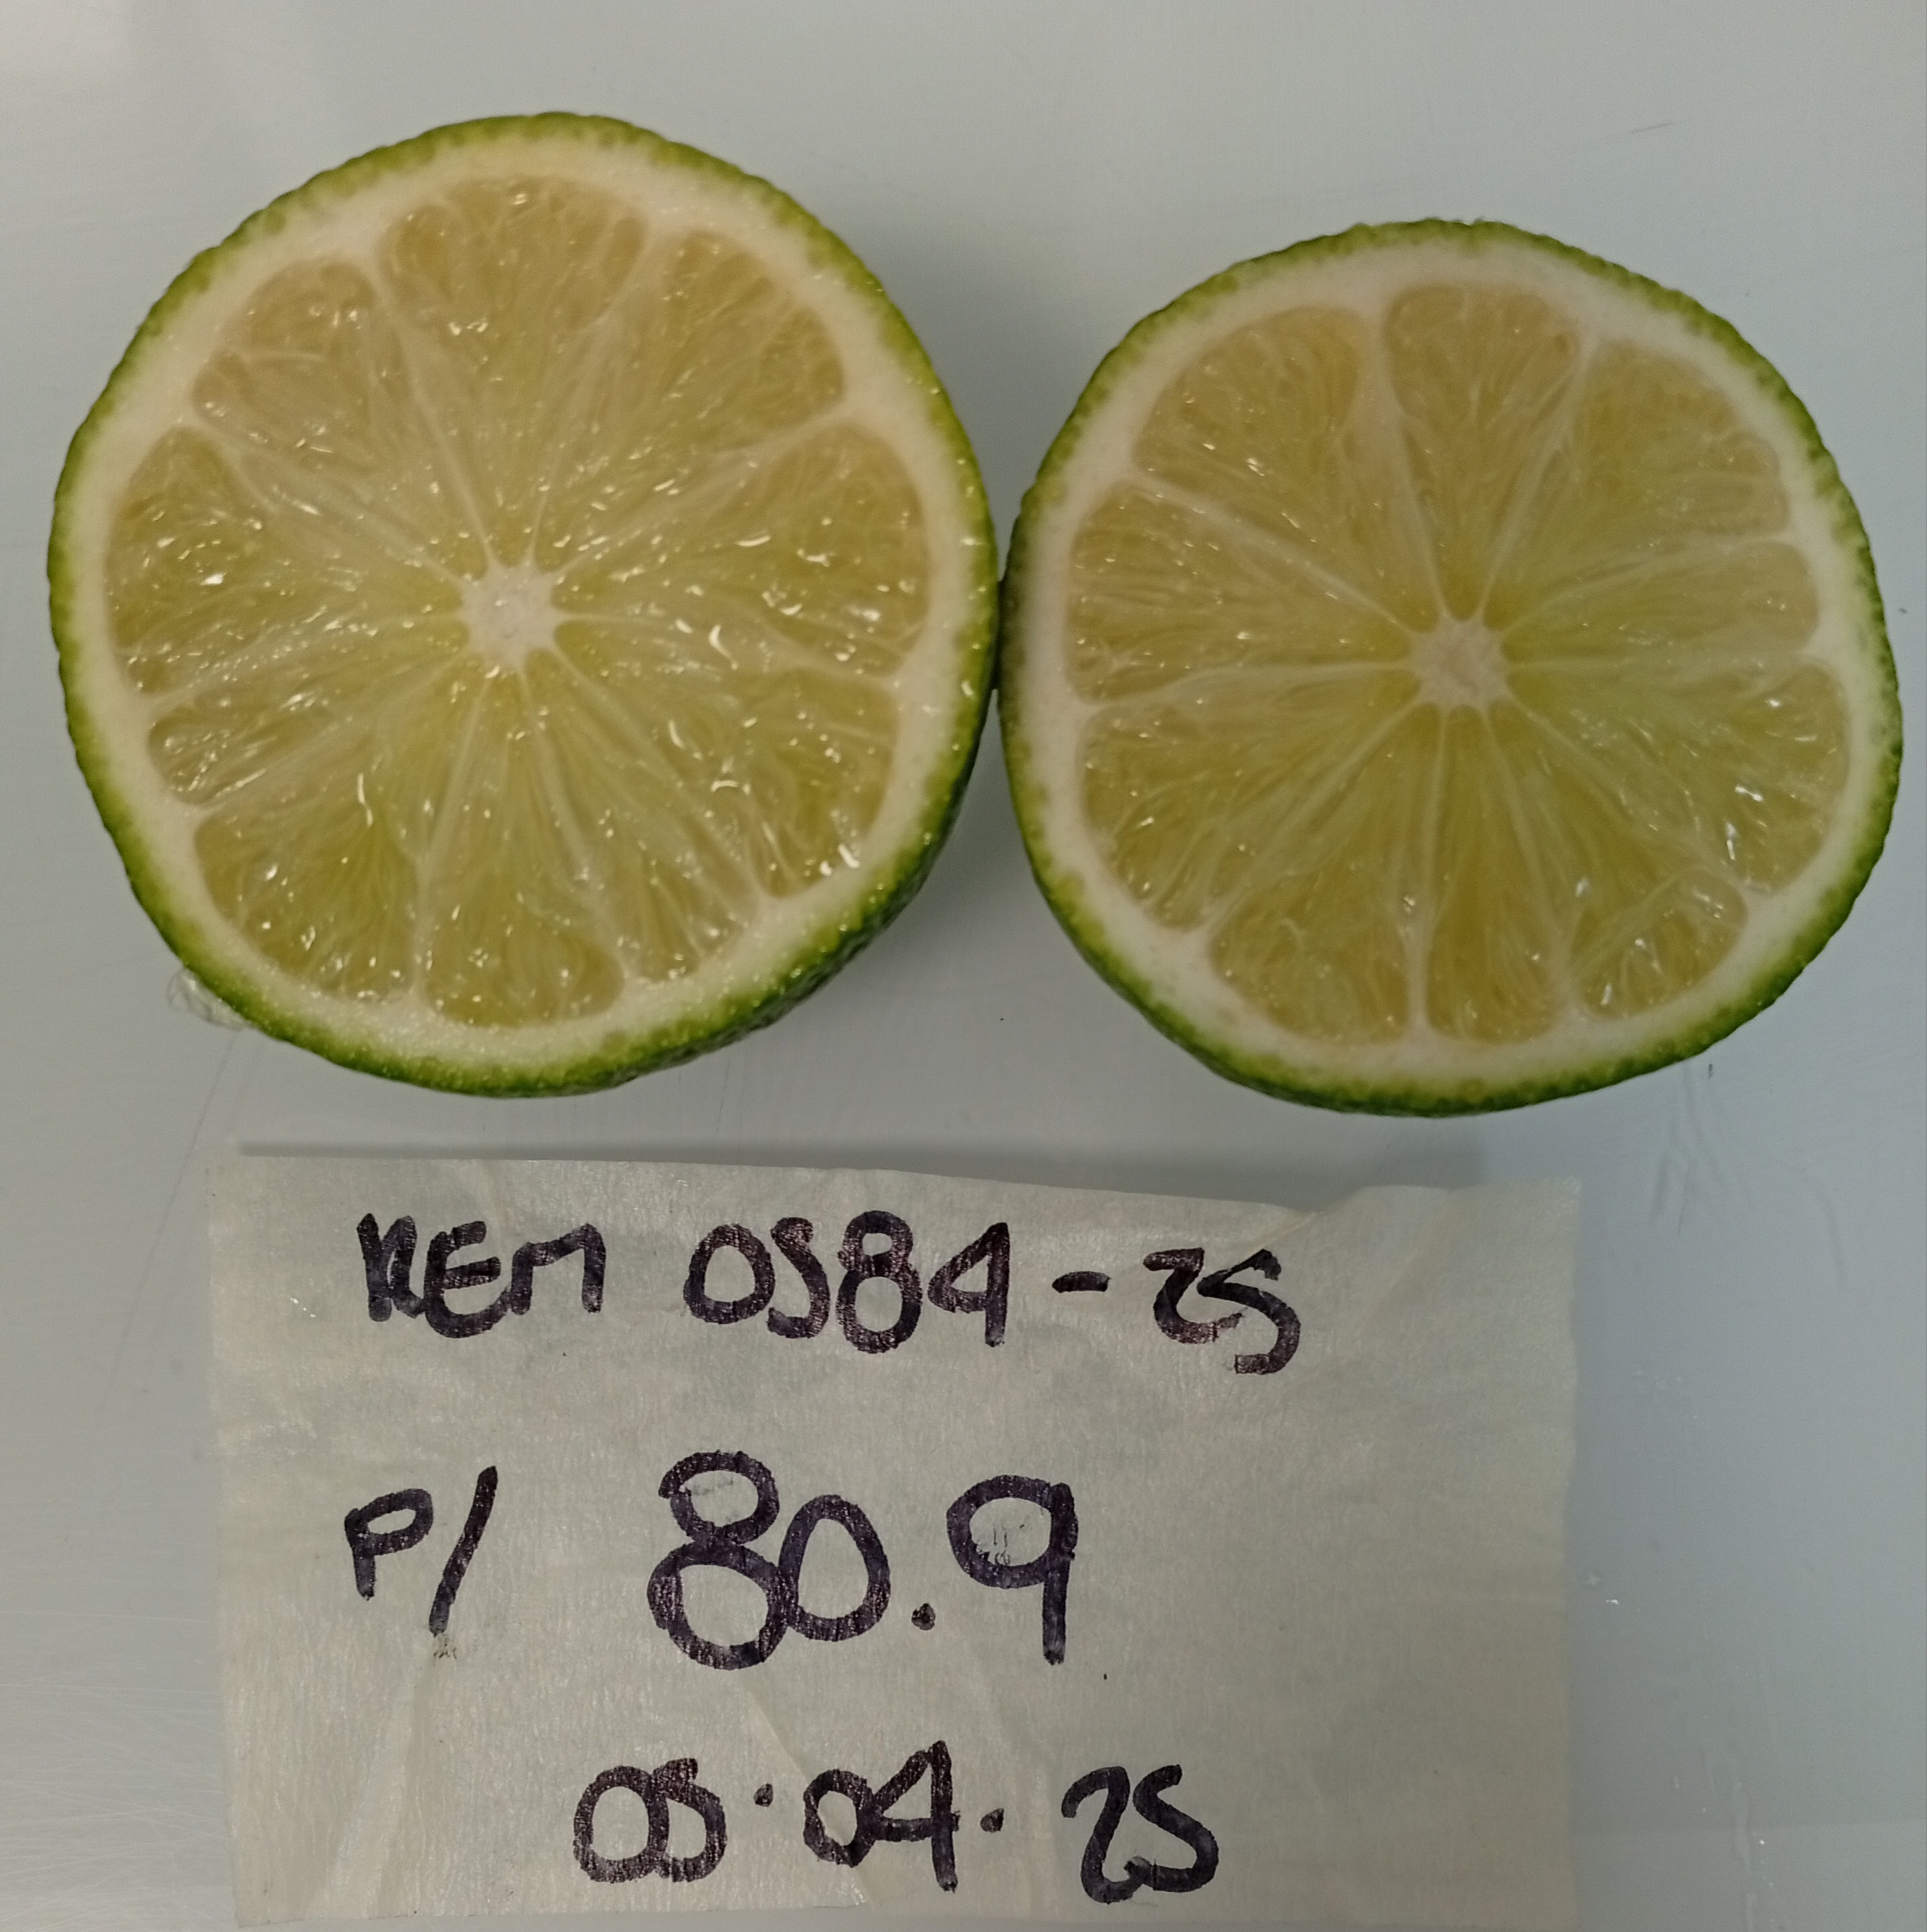 REM 0584-25
P/ 80.9
05.04.25